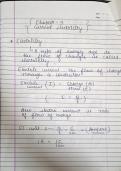 Chapter - 3
{ Current electricity }
Electricity
A type of energy due to
the flow of charges is called
electricity.
Electric current the flow of charge
through a conductor
Electric (I) = charge (Q)
Current time (t)
I = Q/t
Also electric current is rate
of flow of charge